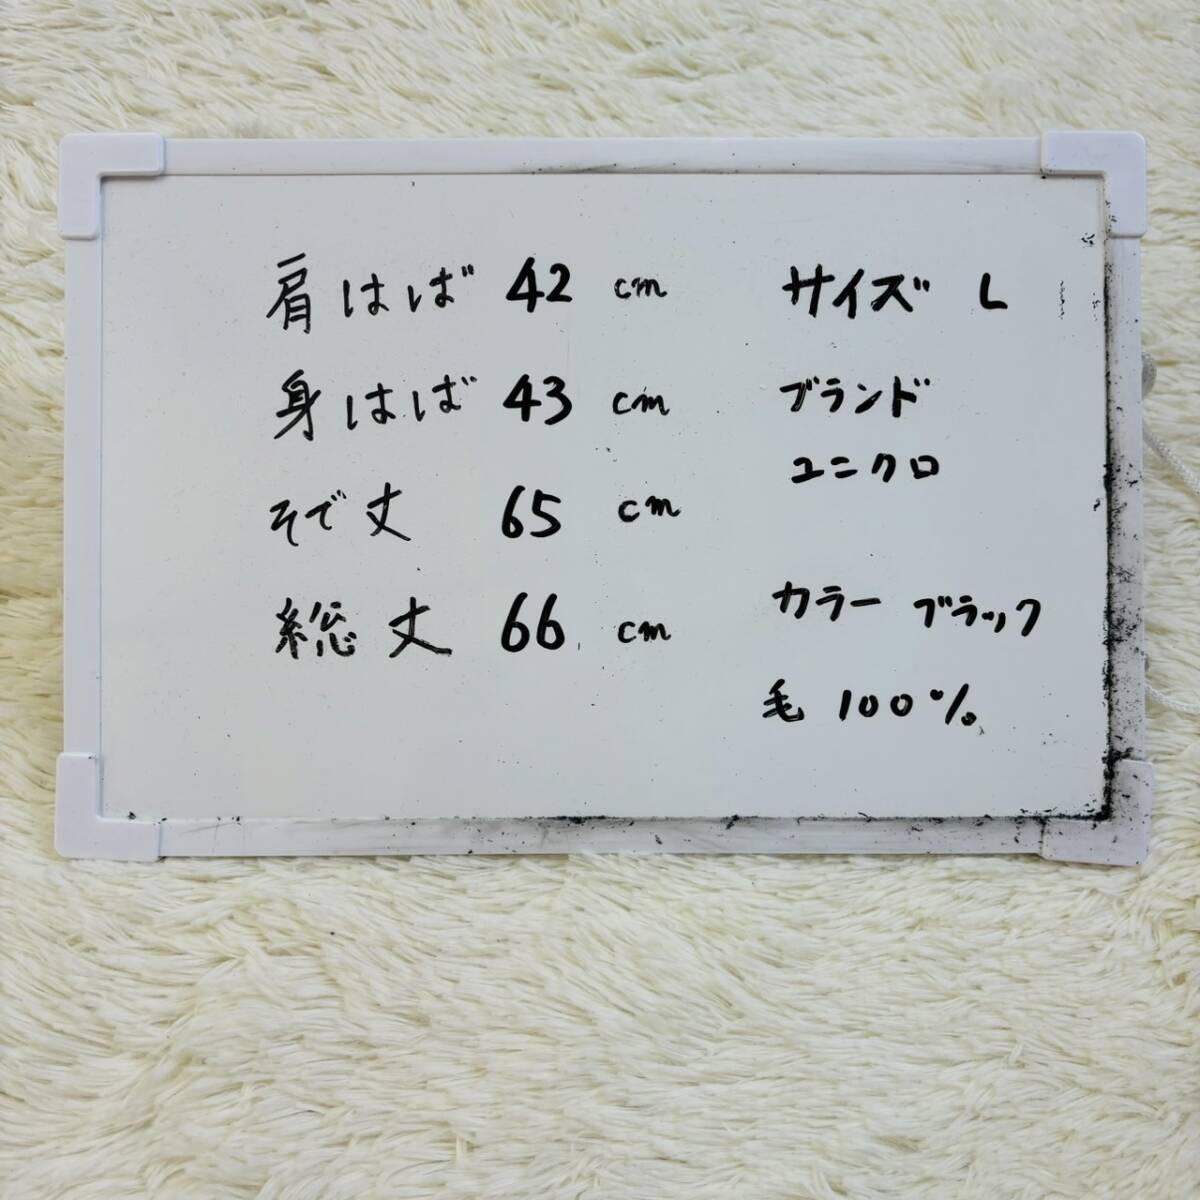 肩はば 42 cm
身はば 43 cm
そで丈 65 cm
総丈 66 cm
サイズ L
ブランド
ユニクロ
カラー ブラック
毛 100%